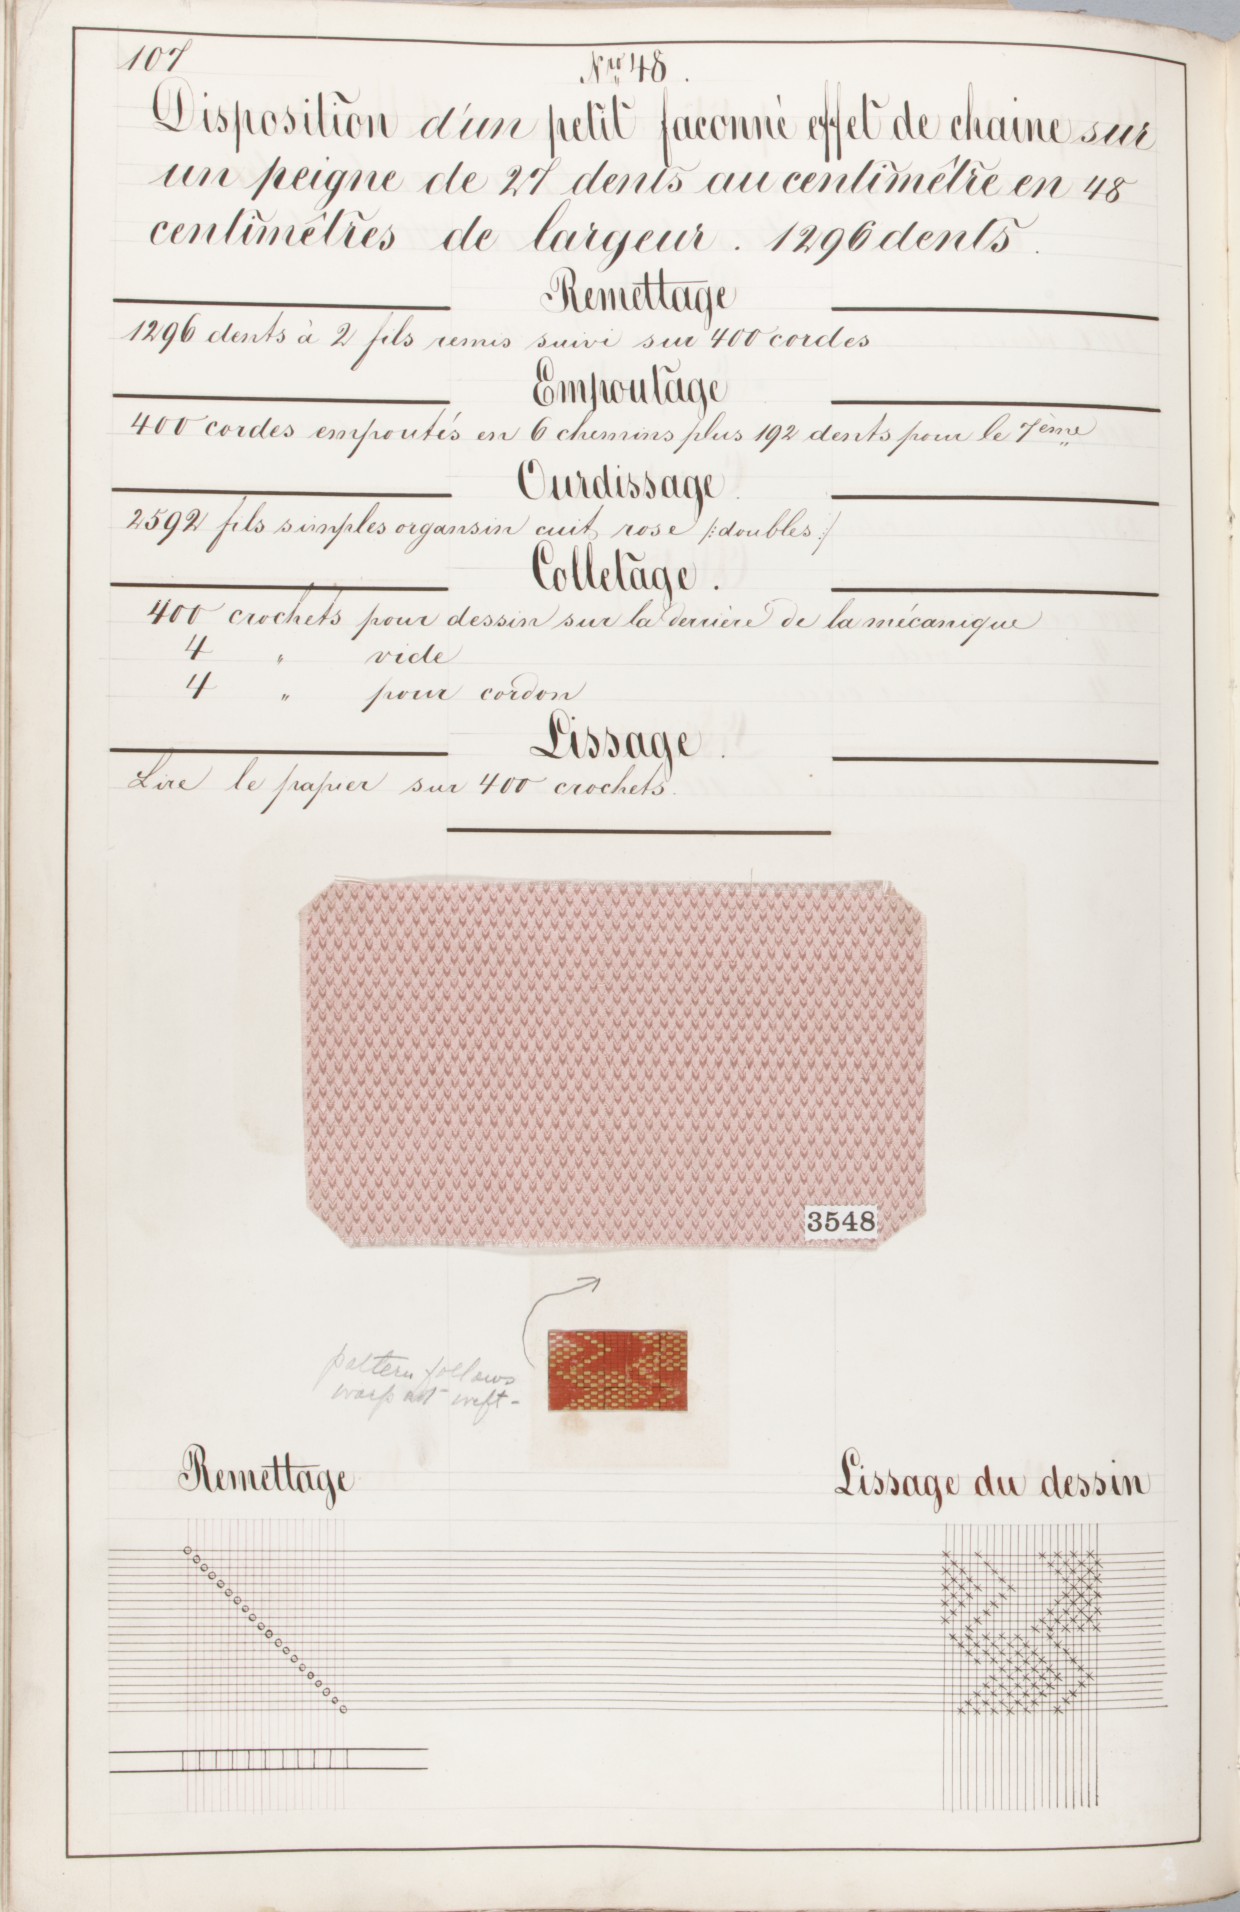 107
Nro 48.
Disposition d'un petit façonné effet de chaine sur
un peigne de 27 dents au centimêtre en 48
centimêtres de largeur. 1296 dents.
Remettage
1296 dents à 2 fils remis suivi sur 400 cordes
Empoutage
400 cordes empoutés en 6 chemins plus 192 dents pour le 7ème
Ourdissage.
2592 fils simples organsin cuit, rose /:doubles:/
Colletage.
400 crochets pour dessin sur la derrière de la mécanique
4 " vide
4 " pour cordon
Lissage.
Lire le papier sur 400 crochets.
3548
pattern follows
warp not weft -
Remettage
Lissage du dessin